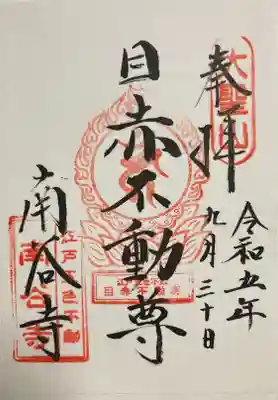 奉拝
大聖山
令和五年
九月三十日
目赤不動尊
南谷寺
江戸五色不動
南谷寺